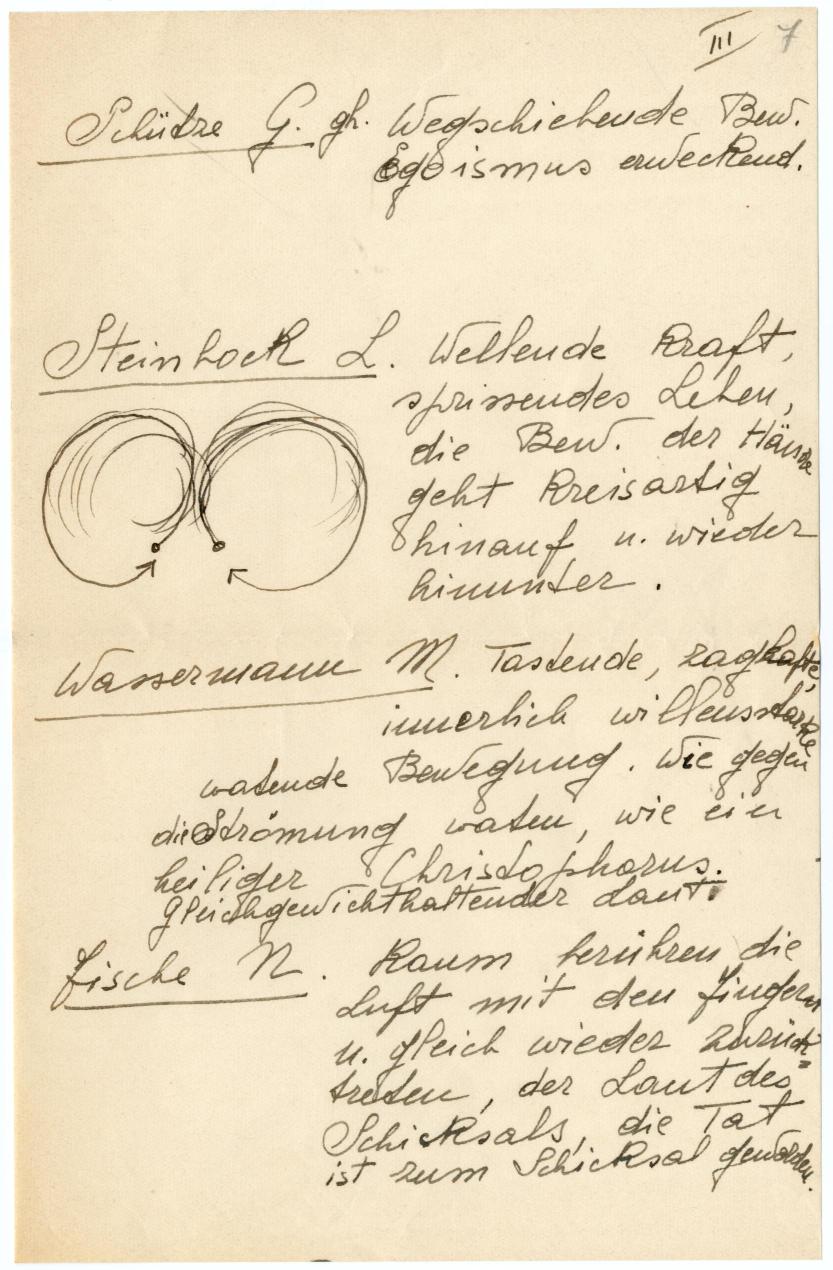 III 7
Schütze G. gh. Wegschiebende Bew.
Egoismus erweckend.
Steinbock L. Wellende Kraft,
sprissendes Leben,
die Bew. der Hände
geht kreisartig
hinauf u. wieder
hinunter.
Wassermann M. Tastende, zaghafte,
innerlich willensstarke
watende Bewegung. Wie gegen
die Strömung waten, wie ein
heiliger Christophorus.
Gleichgewichthaltender Laut.
Fische N. Kaum berühren die
Luft mit den Fingern
u. gleich wieder zurück=
treten, der Laut des
Schicksals, die Tat
ist zum Schicksal geworden.